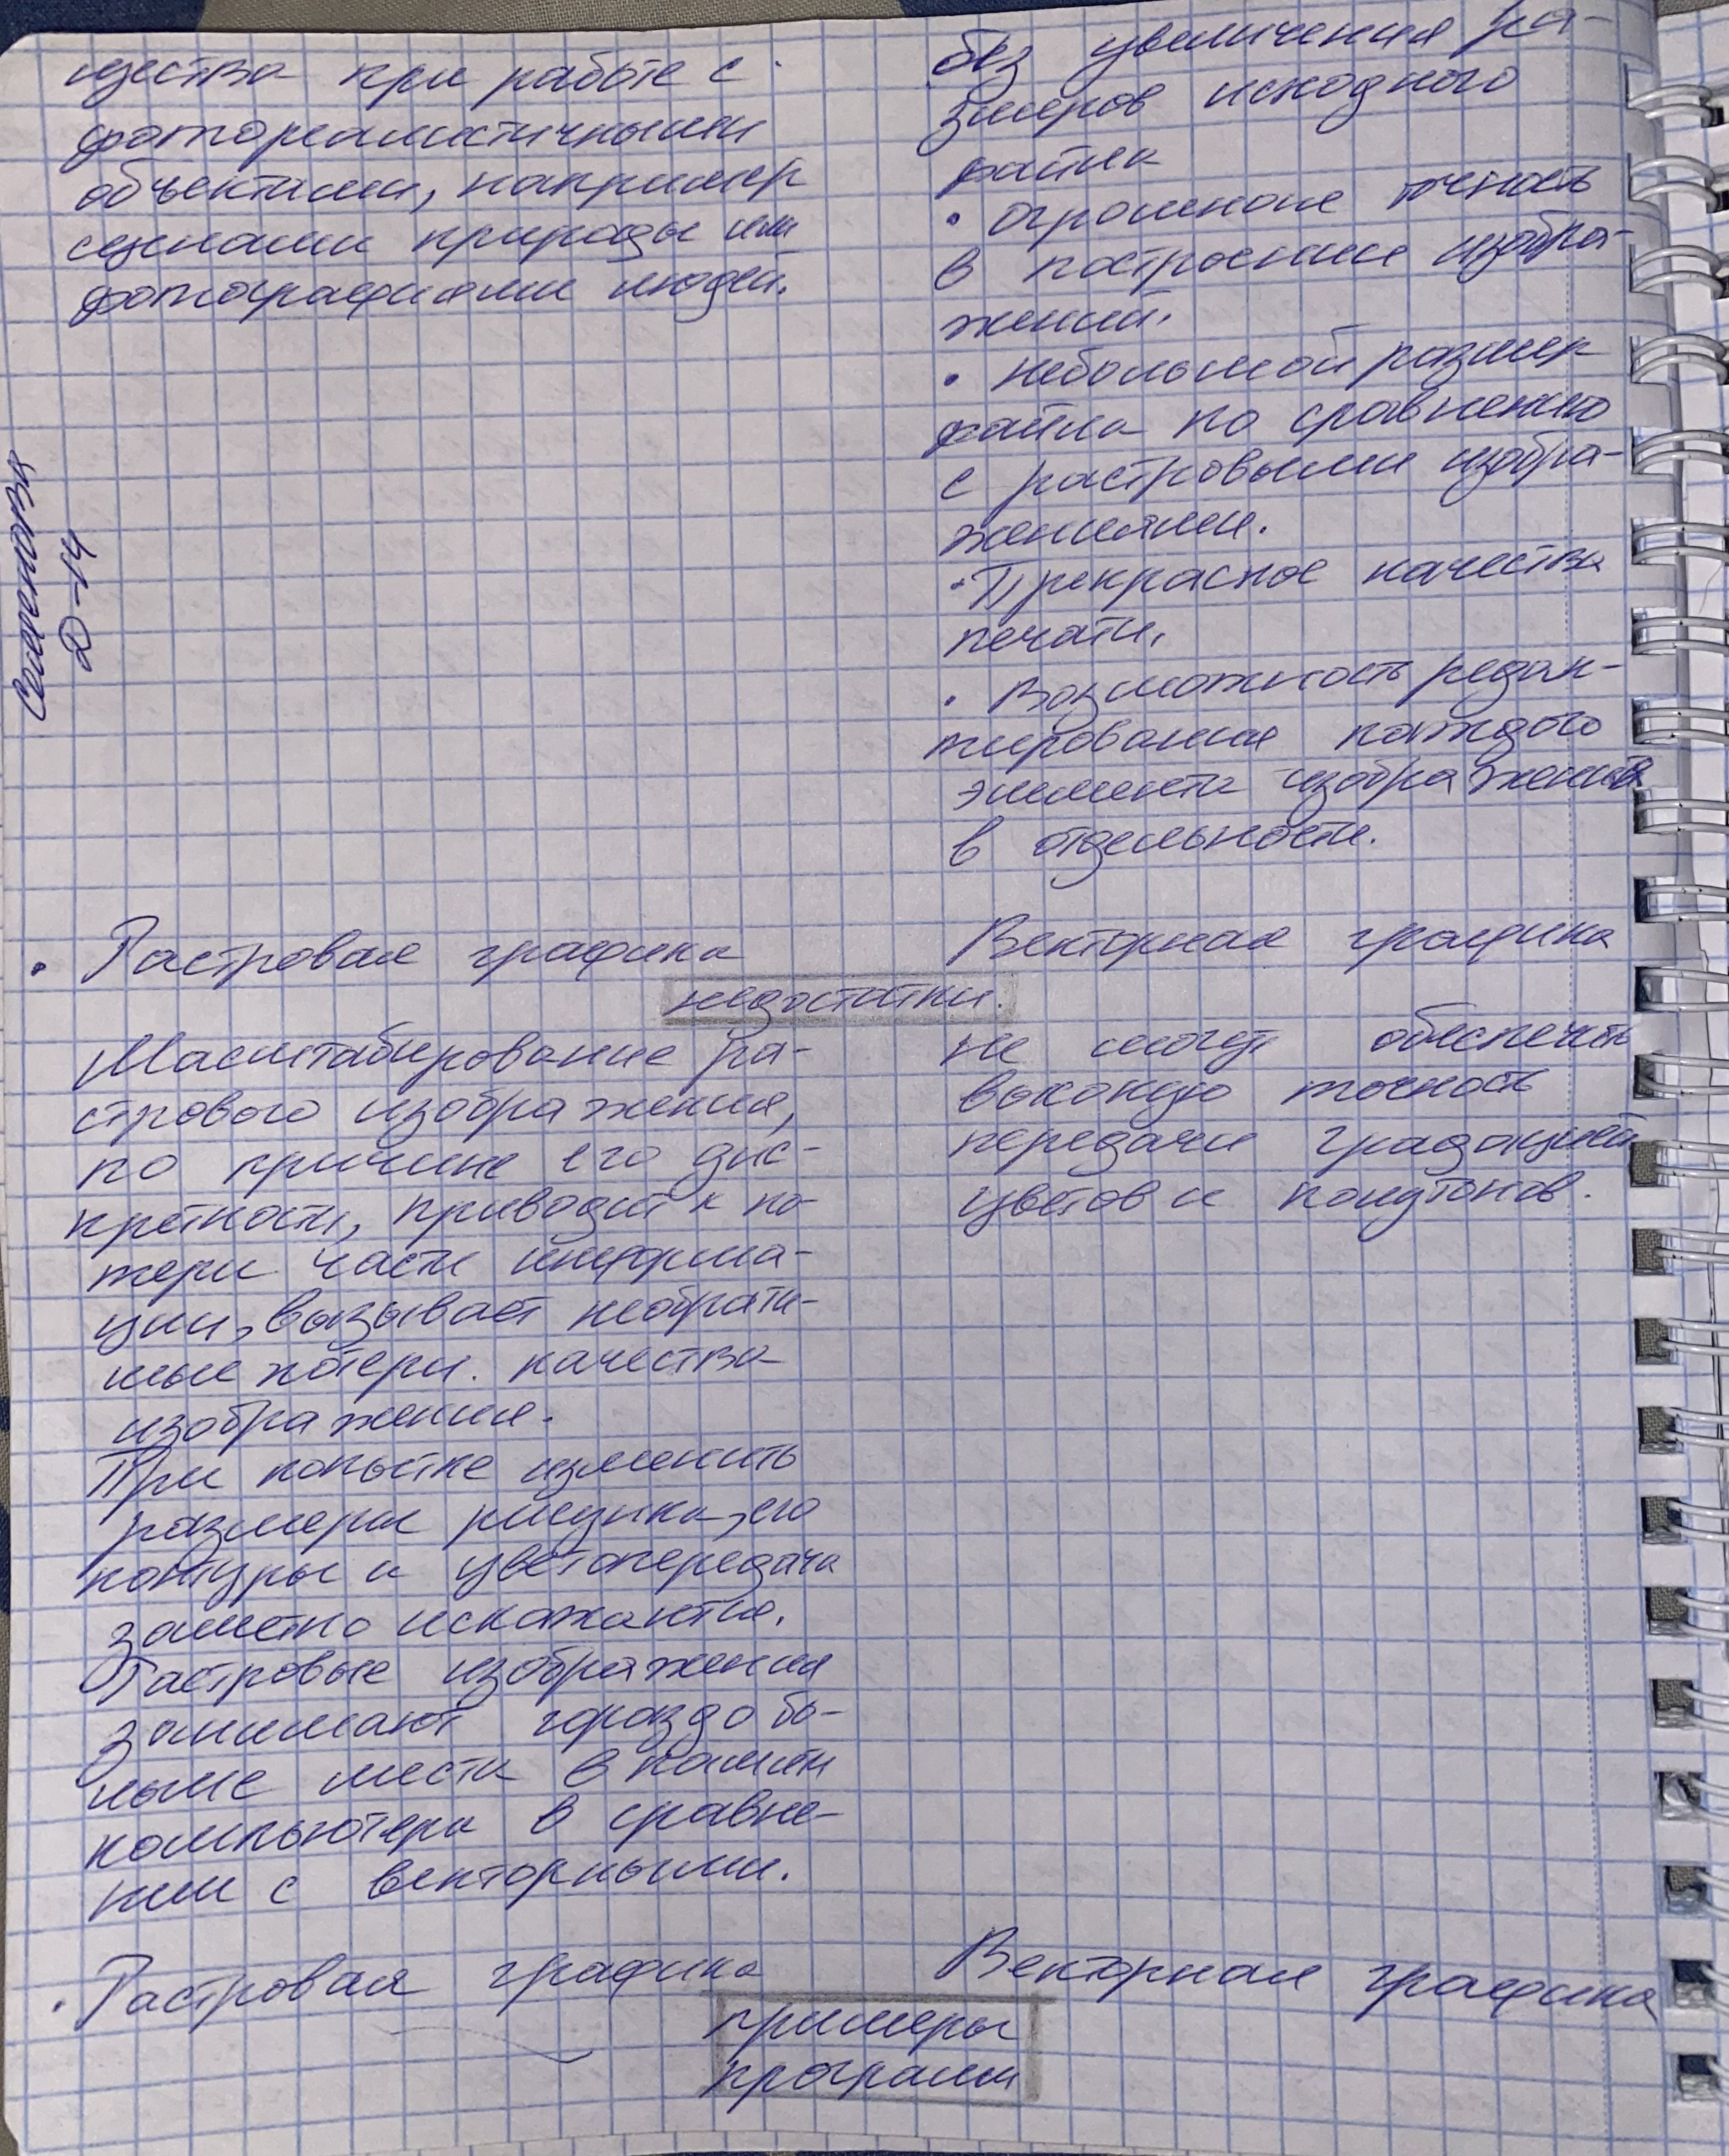 щества при работе с
фотореалистичными
объектами, например
сценами природы или
фотографиями людей.
без увеличения ра-
змеров исходного
файла
• огромная точность
в построение изобра-
жений.
• небольшой размер
файла по сравнению
с растровыми изобра-
жениями.
• Прекрасное качество
печати.
• Возможность редак-
тирования каждого
элемента изображения
в отдельности.
Семененова
Д-14
• Растровая графика
Векторная графика
недостатки.
Масштабирование ра-
стрового изображения,
по причине его дис-
кретности, приводит к по-
тери части информа-
ции, вызывает необрати-
мые потери. качества
изображения.
При попытке изменить
размеры рисунка, его
контуры и цветопередача
заметно искажаются.
Растровые изображения
занимают гораздо бо-
льше места в памяти
компьютера в сравне-
нии с векторными.
не могут обеспечить
высокую точность
передачи градаций
цветов и полутонов.
• Растровая графика
Векторная графика
примеры
программ